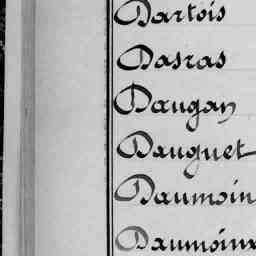 Dartois
Dasras
Daugan
Dauguet
Daumoin
Daumoinx